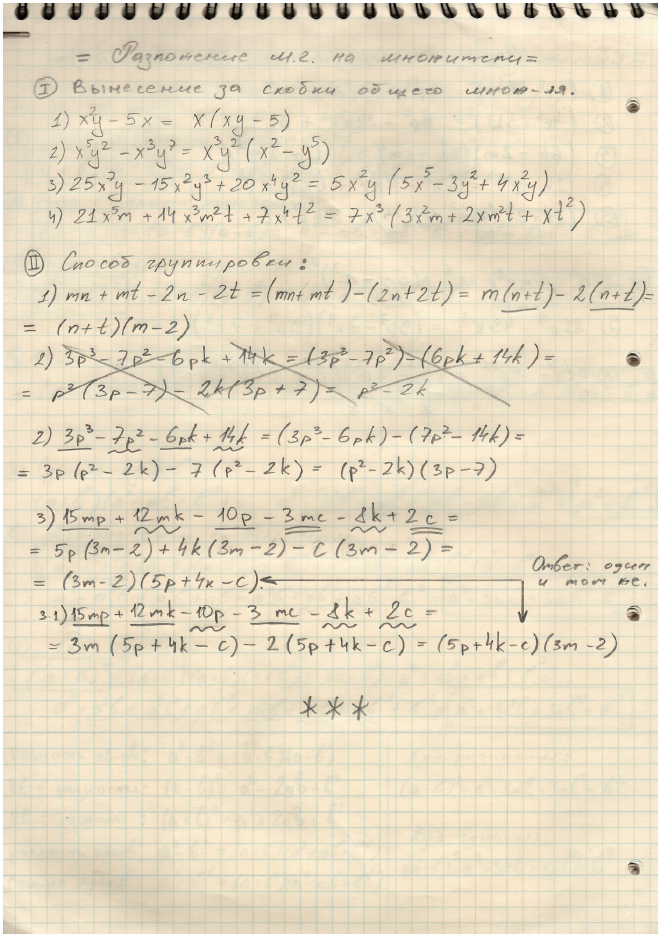 = Разложение м.г. на множители =
I Вынесение за скобки общего множ-ля.
1) x²y - 5x = x(xy - 5)
2) x⁵y² - x³y⁷ = x³y²(x² - y⁵)
3) 25x⁷y - 15x²y³ + 20x⁴y² = 5x²y (5x⁵ - 3y² + 4x²y)
4) 21x⁵m + 14x³m²t + 7x⁴t² = 7x³(3x²m + 2xm²t + xt²)
II Способ группировки:
1) mn + mt - 2n - 2t = (mn + mt) - (2n + 2t) = m(n+t) - 2(n+t) =
= (n+t)(m-2)
2) 3p³ - 7p² - 6pk + 14k = (3p³ - 7p²) - (6pk + 14k) =
= p²(3p - 7) - 2k(3p + 7) = p² - 2k
2) 3p³ - 7p² - 6pk + 14k = (3p³ - 6pk) - (7p² - 14k) =
= 3p(p² - 2k) - 7(p² - 2k) = (p² - 2k)(3p - 7)
3) 15mp + 12mk - 10p - 3mc - 8k + 2c =
= 5p(3m - 2) + 4k(3m - 2) - c(3m - 2) =
Ответ: один
и тот же.
= (3m-2)(5p + 4x - c).
3.1) 15mp + 12mk - 10p - 3mc - 8k + 2c =
= 3m(5p + 4k - c) - 2(5p + 4k - c) = (5p + 4k - c)(3m - 2)
***